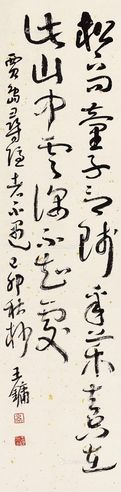 松下問童子言師采藥去只在
此山中雲深不知處
賈島尋隱者不遇己卯秋杪王鏞